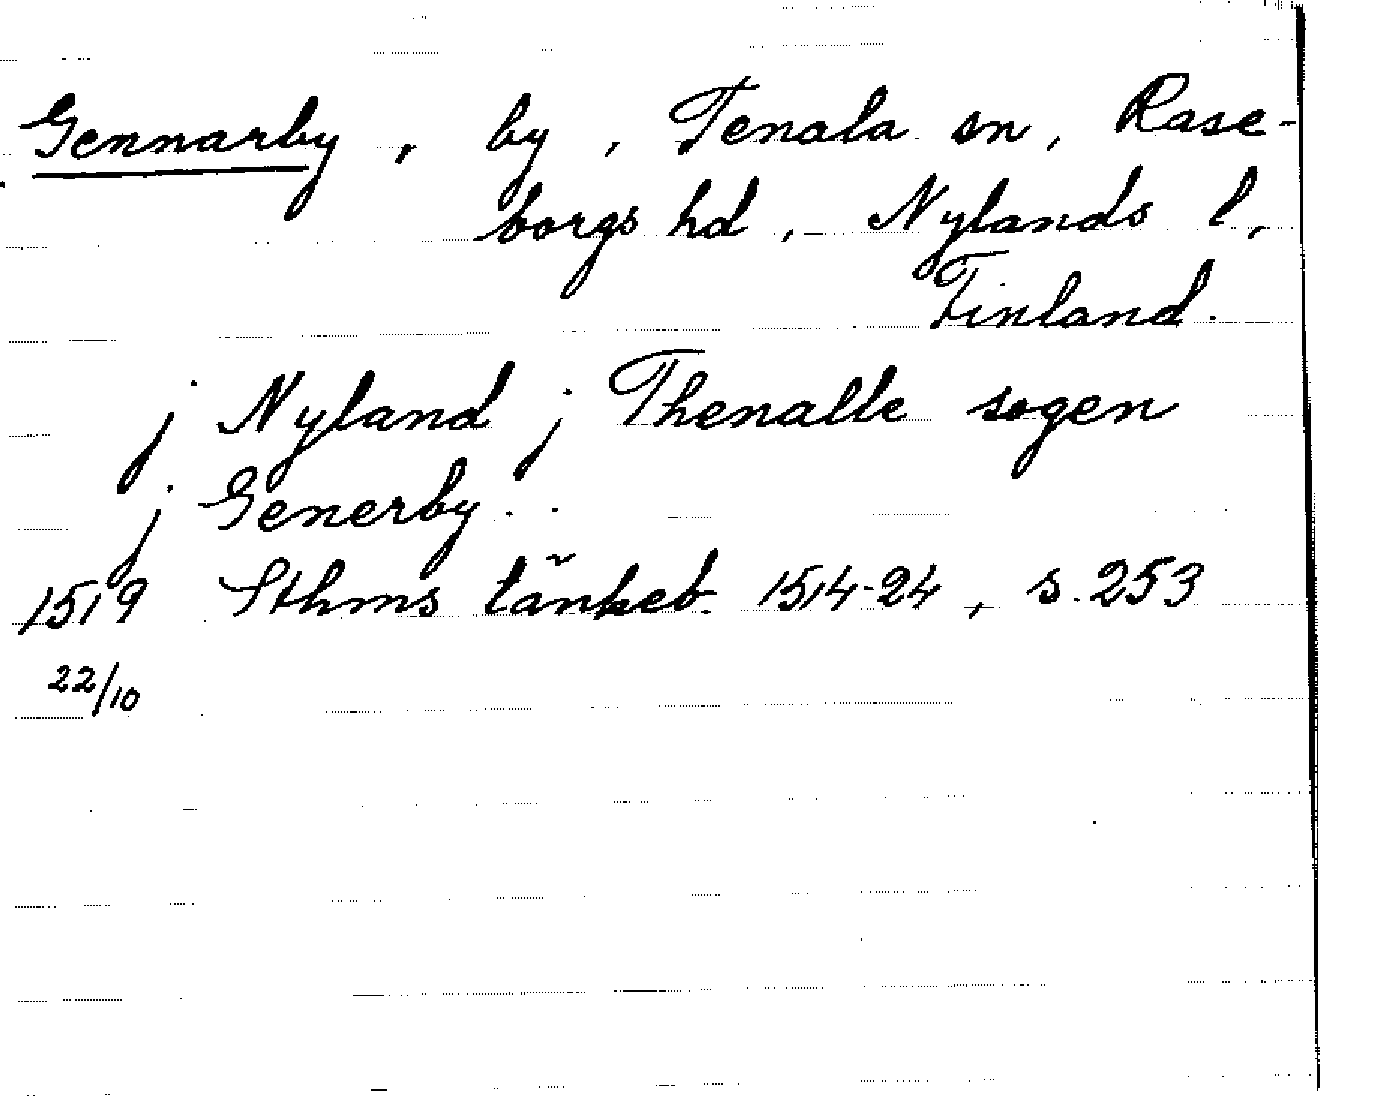 Gennarby, by, Tenala sn, Rase-
borgs hd, Nylands l,
Finland.
j Nyland j Thenalle sogen
j Generby..
1519 Sthms tänkeb. 1514-24, s. 253
22/10